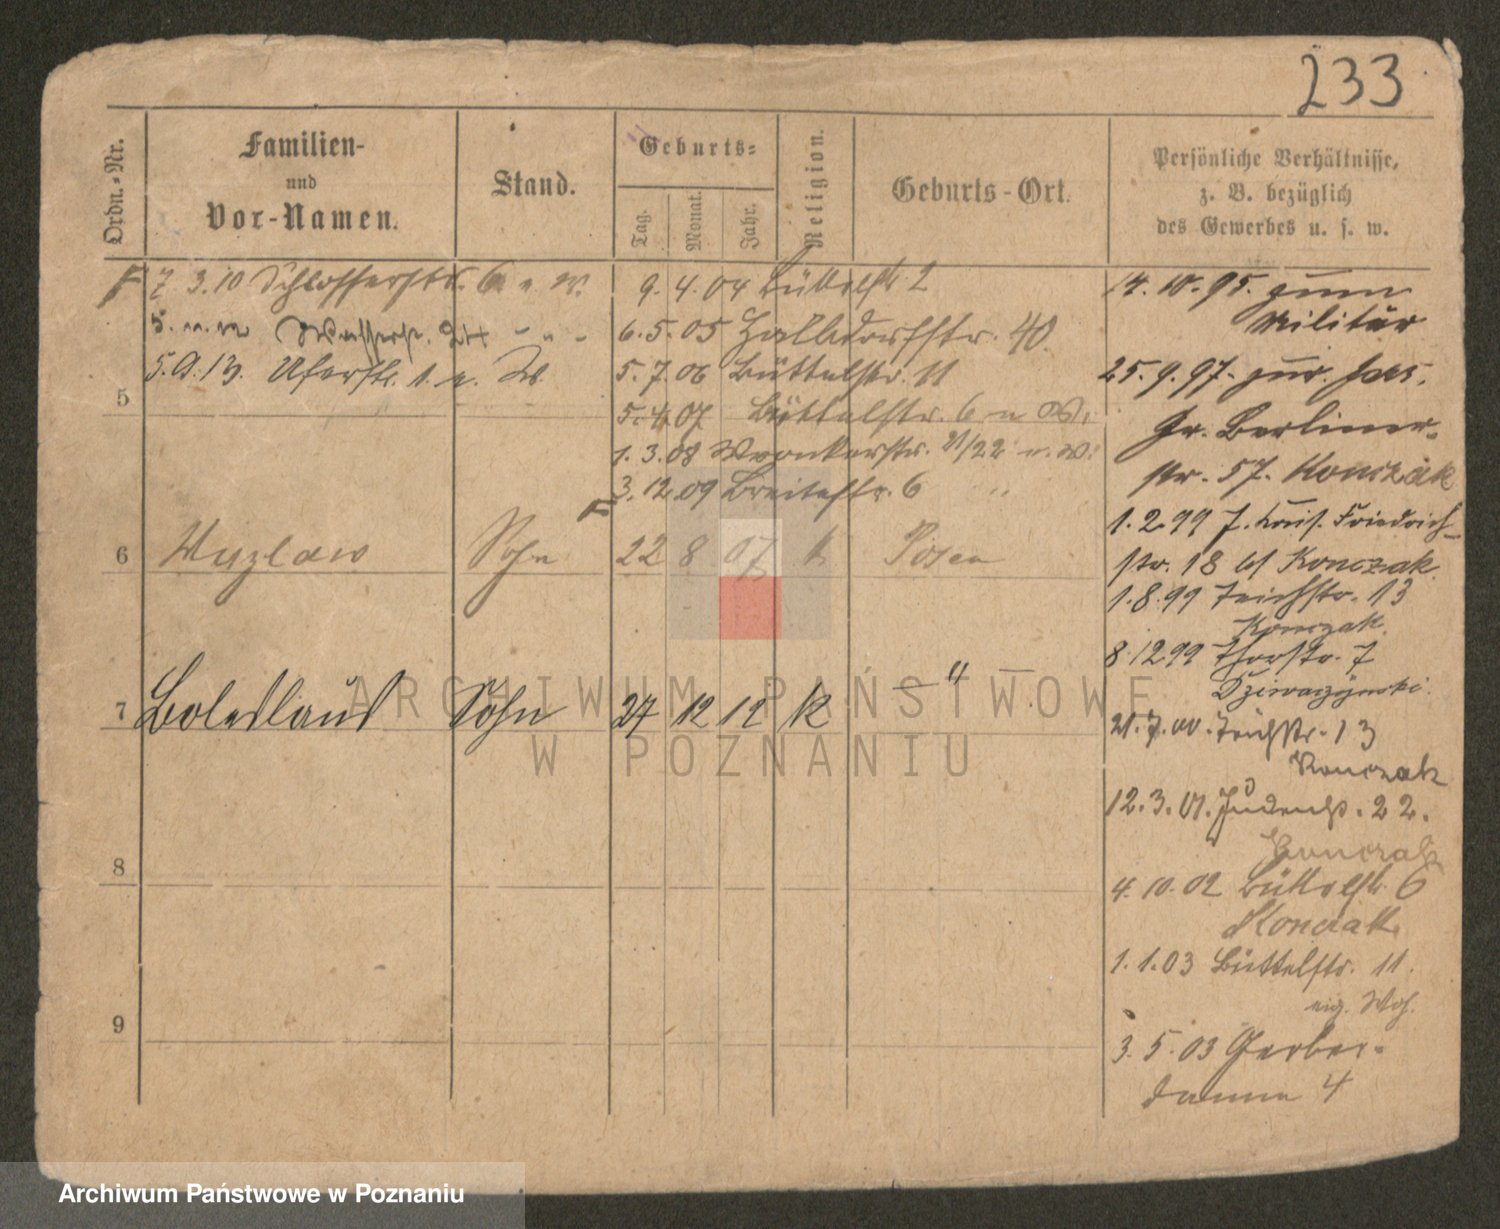 233
Ordn.-Nr.
Familien-
und
Vor-Namen.
Stand.
Geburts-
Tag.
Monat.
Jahr.
Religion.
Geburts-Ort.
Persönliche Verhältnisse,
z. B. bezüglich
des Gewerbes u. s. w.
7. 3. 10 Schlosserstr. 6 u. W.
Wasserstr.
Uferstr. 1. u. W.
5
9. 4. 04 Büttelstr. 2
6. 5. 05 Halbdorfstr. 40.
5. 7. 06 Büttelstr. 11
5. 4. 07 Büttelstr. 6 u W.
1. 3. 08 Wronkerstr. 21/22 u. W.
3. 12. 09 Breitestr. 6 " "
6 Sohn 22 8 07 k. Posen
7 Boleslaus Sohn 27 12 12 k — " —
8
9
14. 10. 95. zum
Militär
25. 9. 97. zur.
Gr. Berliner-
str. 57. Konczak
1. 2. 99 Friedrich-
str. 18 bf Konczak.
1. 8. 99 Teichstr. 13
Konczak.
8. 12 99 Thorstr. 7
21. 7. 00. Teichstr. 13
Konczak
12. 3. 01. Judenstr. 22.
Konczak
4. 10. 02 Büttelstr. 6
Konczak
1. 1. 03 Büttelstr. 11.
eig. Wg.
3. 5. 03 Gerber-
damm 4
ARCHIWUM PAŃSTWOWE
W POZNANIU
Archiwum Państwowe w Poznaniu